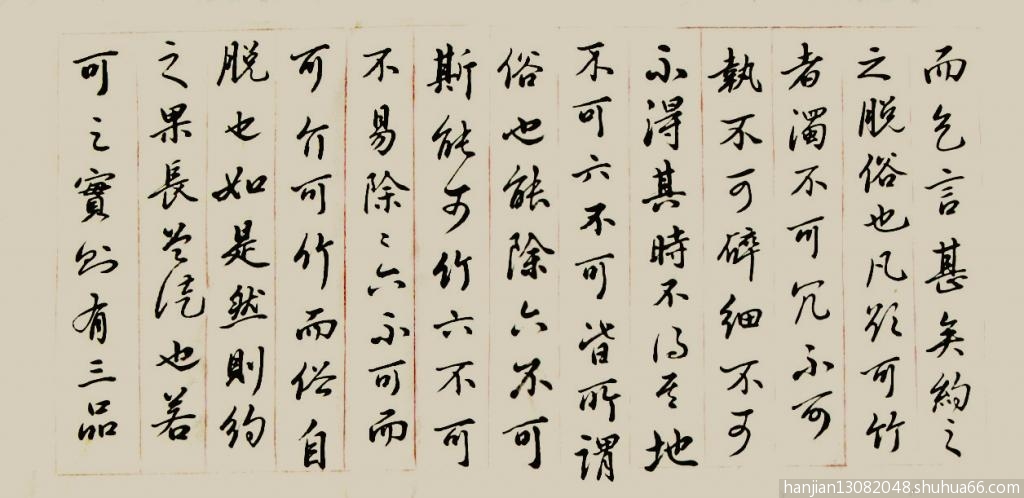 而乞言甚矣約之
之脫俗也凡欲可竹
者濁不可冗不可
執不可碎細不可
不得其時不得其地
不可六不可皆所謂
俗也能除六不可
斯能可竹六不可
不易除々六不可而
可介可竹而俗自
脫也如是然則約
之果長也若
可之實則有三品
hanjian13082048.shuhua66.com